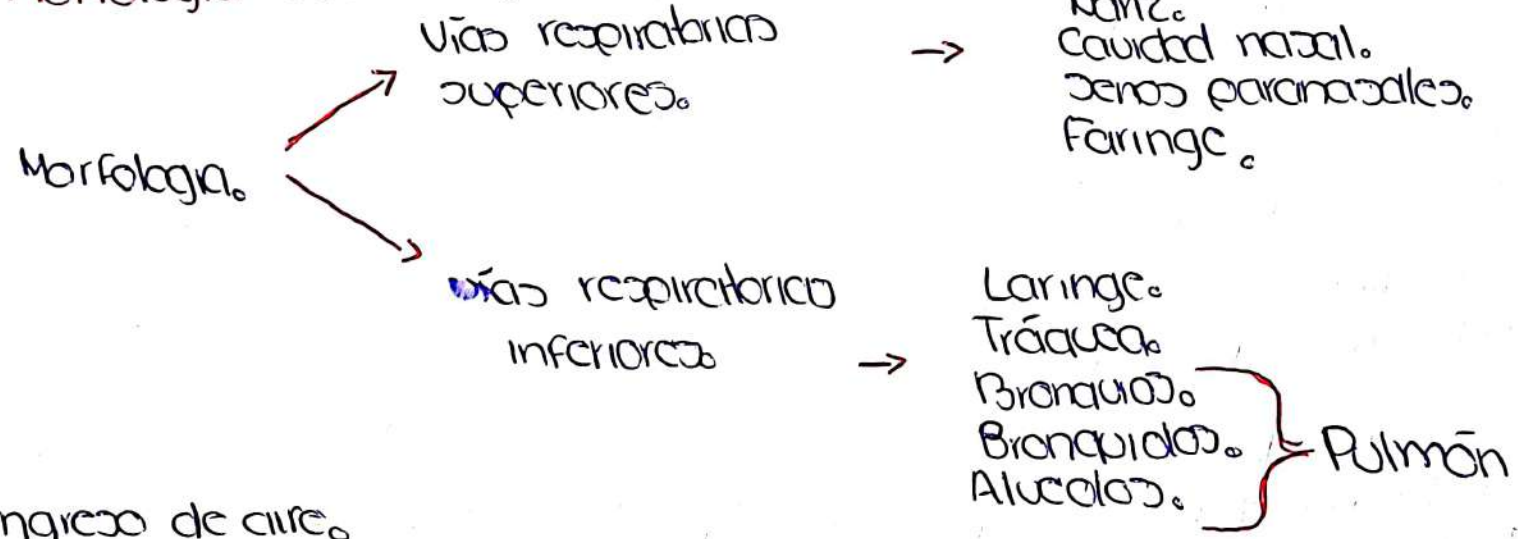 Vías respiratorias
superiores.
→
Nariz.
Cavidad nasal.
Senos paranasales.
Faringe.
Morfología.
Vías respiratorias
inferiores.
→
Laringe.
Tráquea.
Bronquios.
Bronquiolos.
Alveolos.
Pulmón
Ingreso de aire.